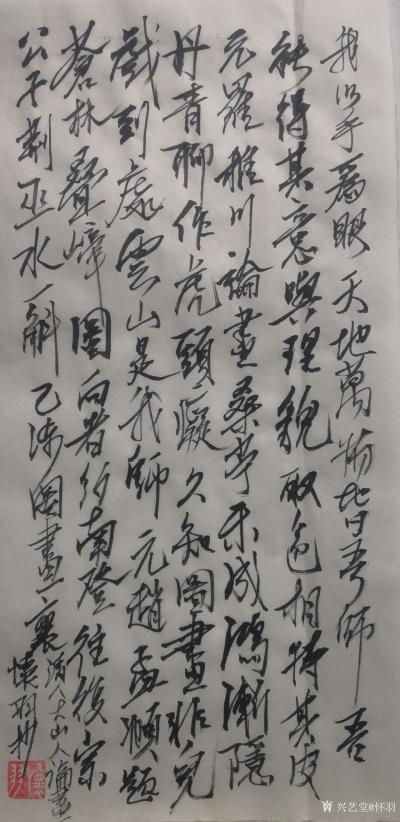 我以手爲眼天地萬物皆吾師 吾
能得其意與理貌取色相特其皮
元羅稚川論畫桑苧未成鴻漸隱
丹青聊作虎頭癡久知圖畫非兒
戲到處雲山是我師 元趙孟頫題
蒼林疊嶂圖向者約南登往復宗
公子荆巫水一斛乙濤圖畫裏清八大山人論畫
懷羽抄
兴艺堂@怀羽